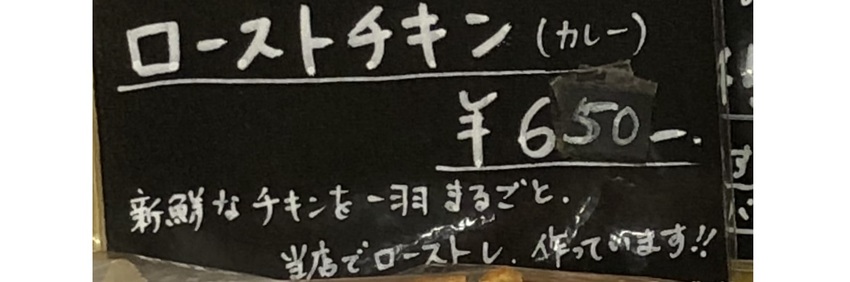 ローストチキン（カレー）
¥650-.
新鮮なチキンを一羽まるごと.
当店でローストし.作っています!!
す